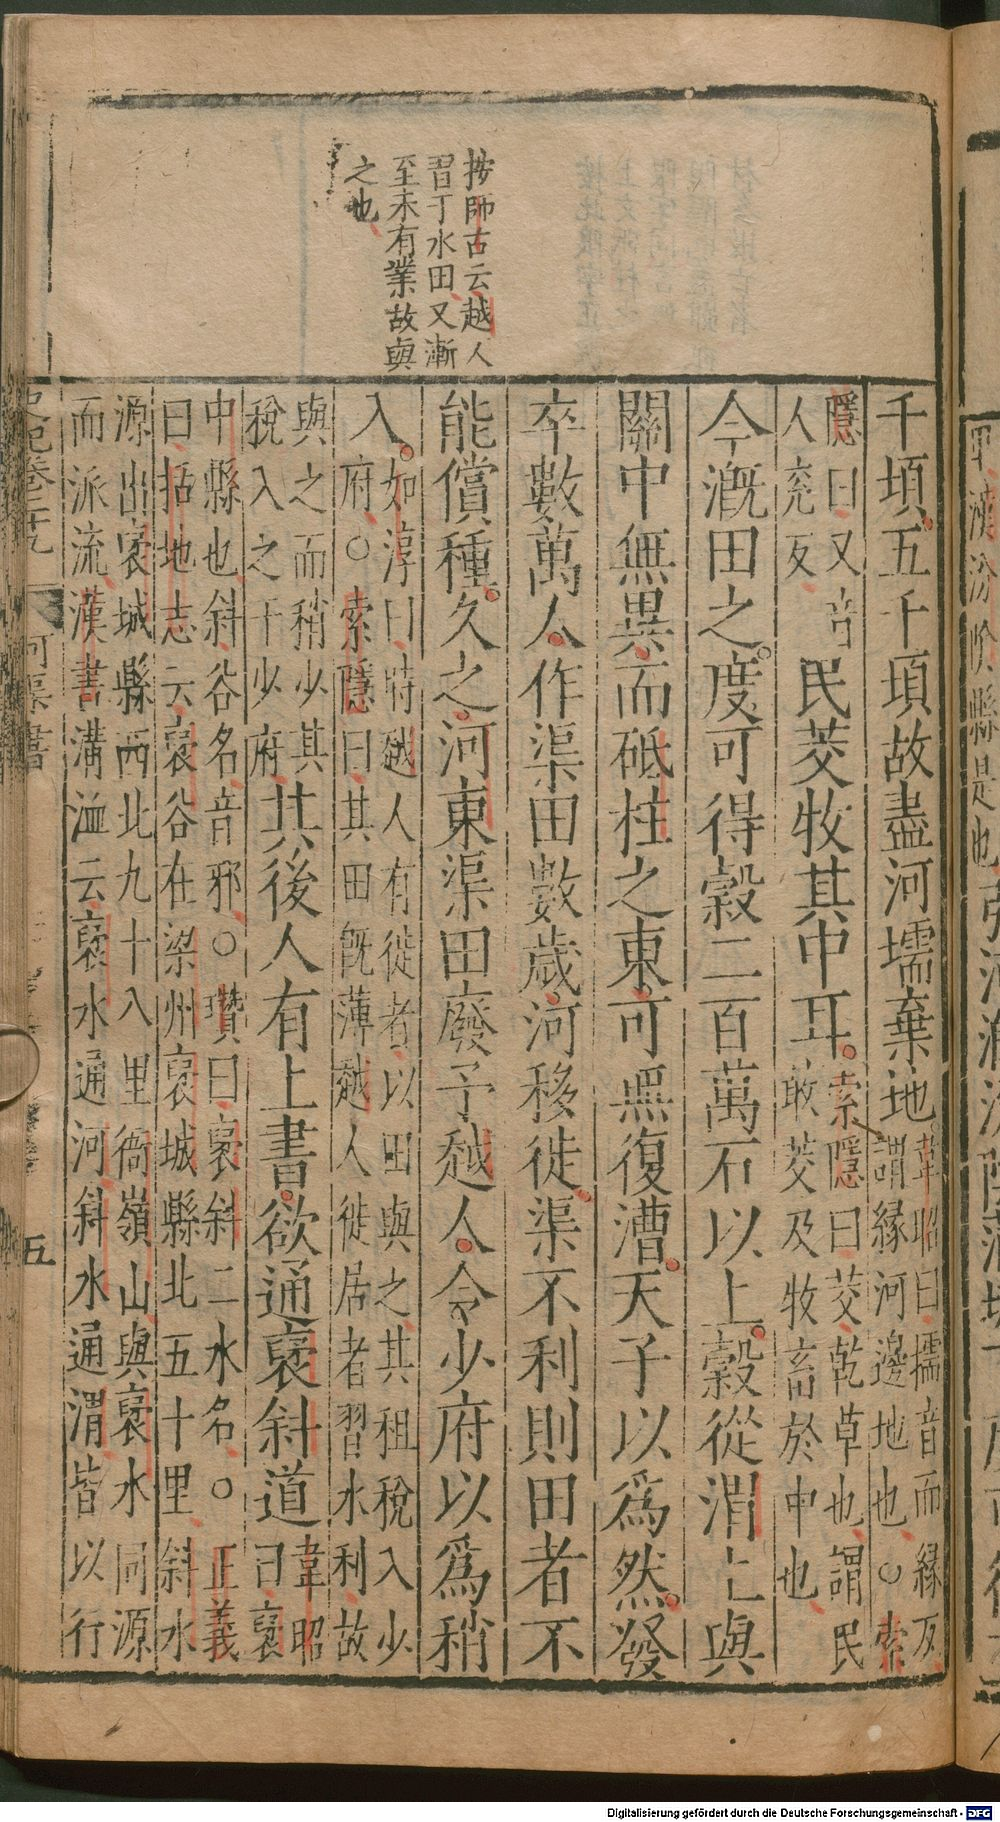 按師古云越人
習于水田又漸
至未有業故與
之也
千頃五千頃故盡河壖棄地韋昭曰壖音而緣反
謂緣河邊地也○索
隱曰又音
人兗反民茭牧其中耳索隱曰茭乾草也謂民
敢茭及牧畜於中也
今漑田之度可得穀二百萬石以上穀從渭上與
關中無異而砥柱之東可無復漕天子以爲然發
卒數萬人作渠田數歲河移徙渠不利則田者不
能償種久之河東渠田廢予越人令少府以爲稍
入如淳曰時越人有徙者以田與之其租稅入少
府○索隱曰其田旣薄越人徙居者習水利故
與之而稍少其
稅入之于少府其後人有上書欲通褒斜道韋昭
曰褒
中縣也斜谷名音邪○瓚曰褒斜二水名○正義
曰括地志云褒谷在梁州褒城縣北五十里斜水
源出褒城縣西北九十八里衙嶺山與褒水同源
而派流漢書溝洫云褒水通河斜水通渭皆以行
史記卷二十九 河渠書 五
Digitalisierung gefördert durch die Deutsche Forschungsgemeinschaft - DFG